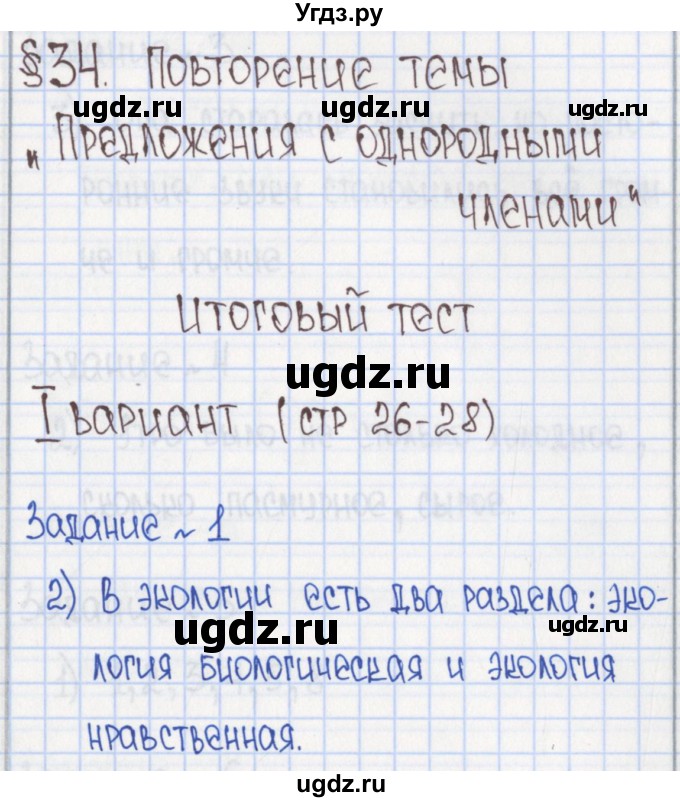 Угдз.ру
§34. Повторение темы
ugdz.ru ugdz.ru
„Предложения с однородными
членами"
Итоговый тест
ugdz.ru
I вариант (стр 26-28)
Задание ~ 1
2) в экологии есть два раздела: эко-
ugdz.ru ugdz.ru
логия биологическая и экология
нравственная.
ugdz.ru
ugdz.ru